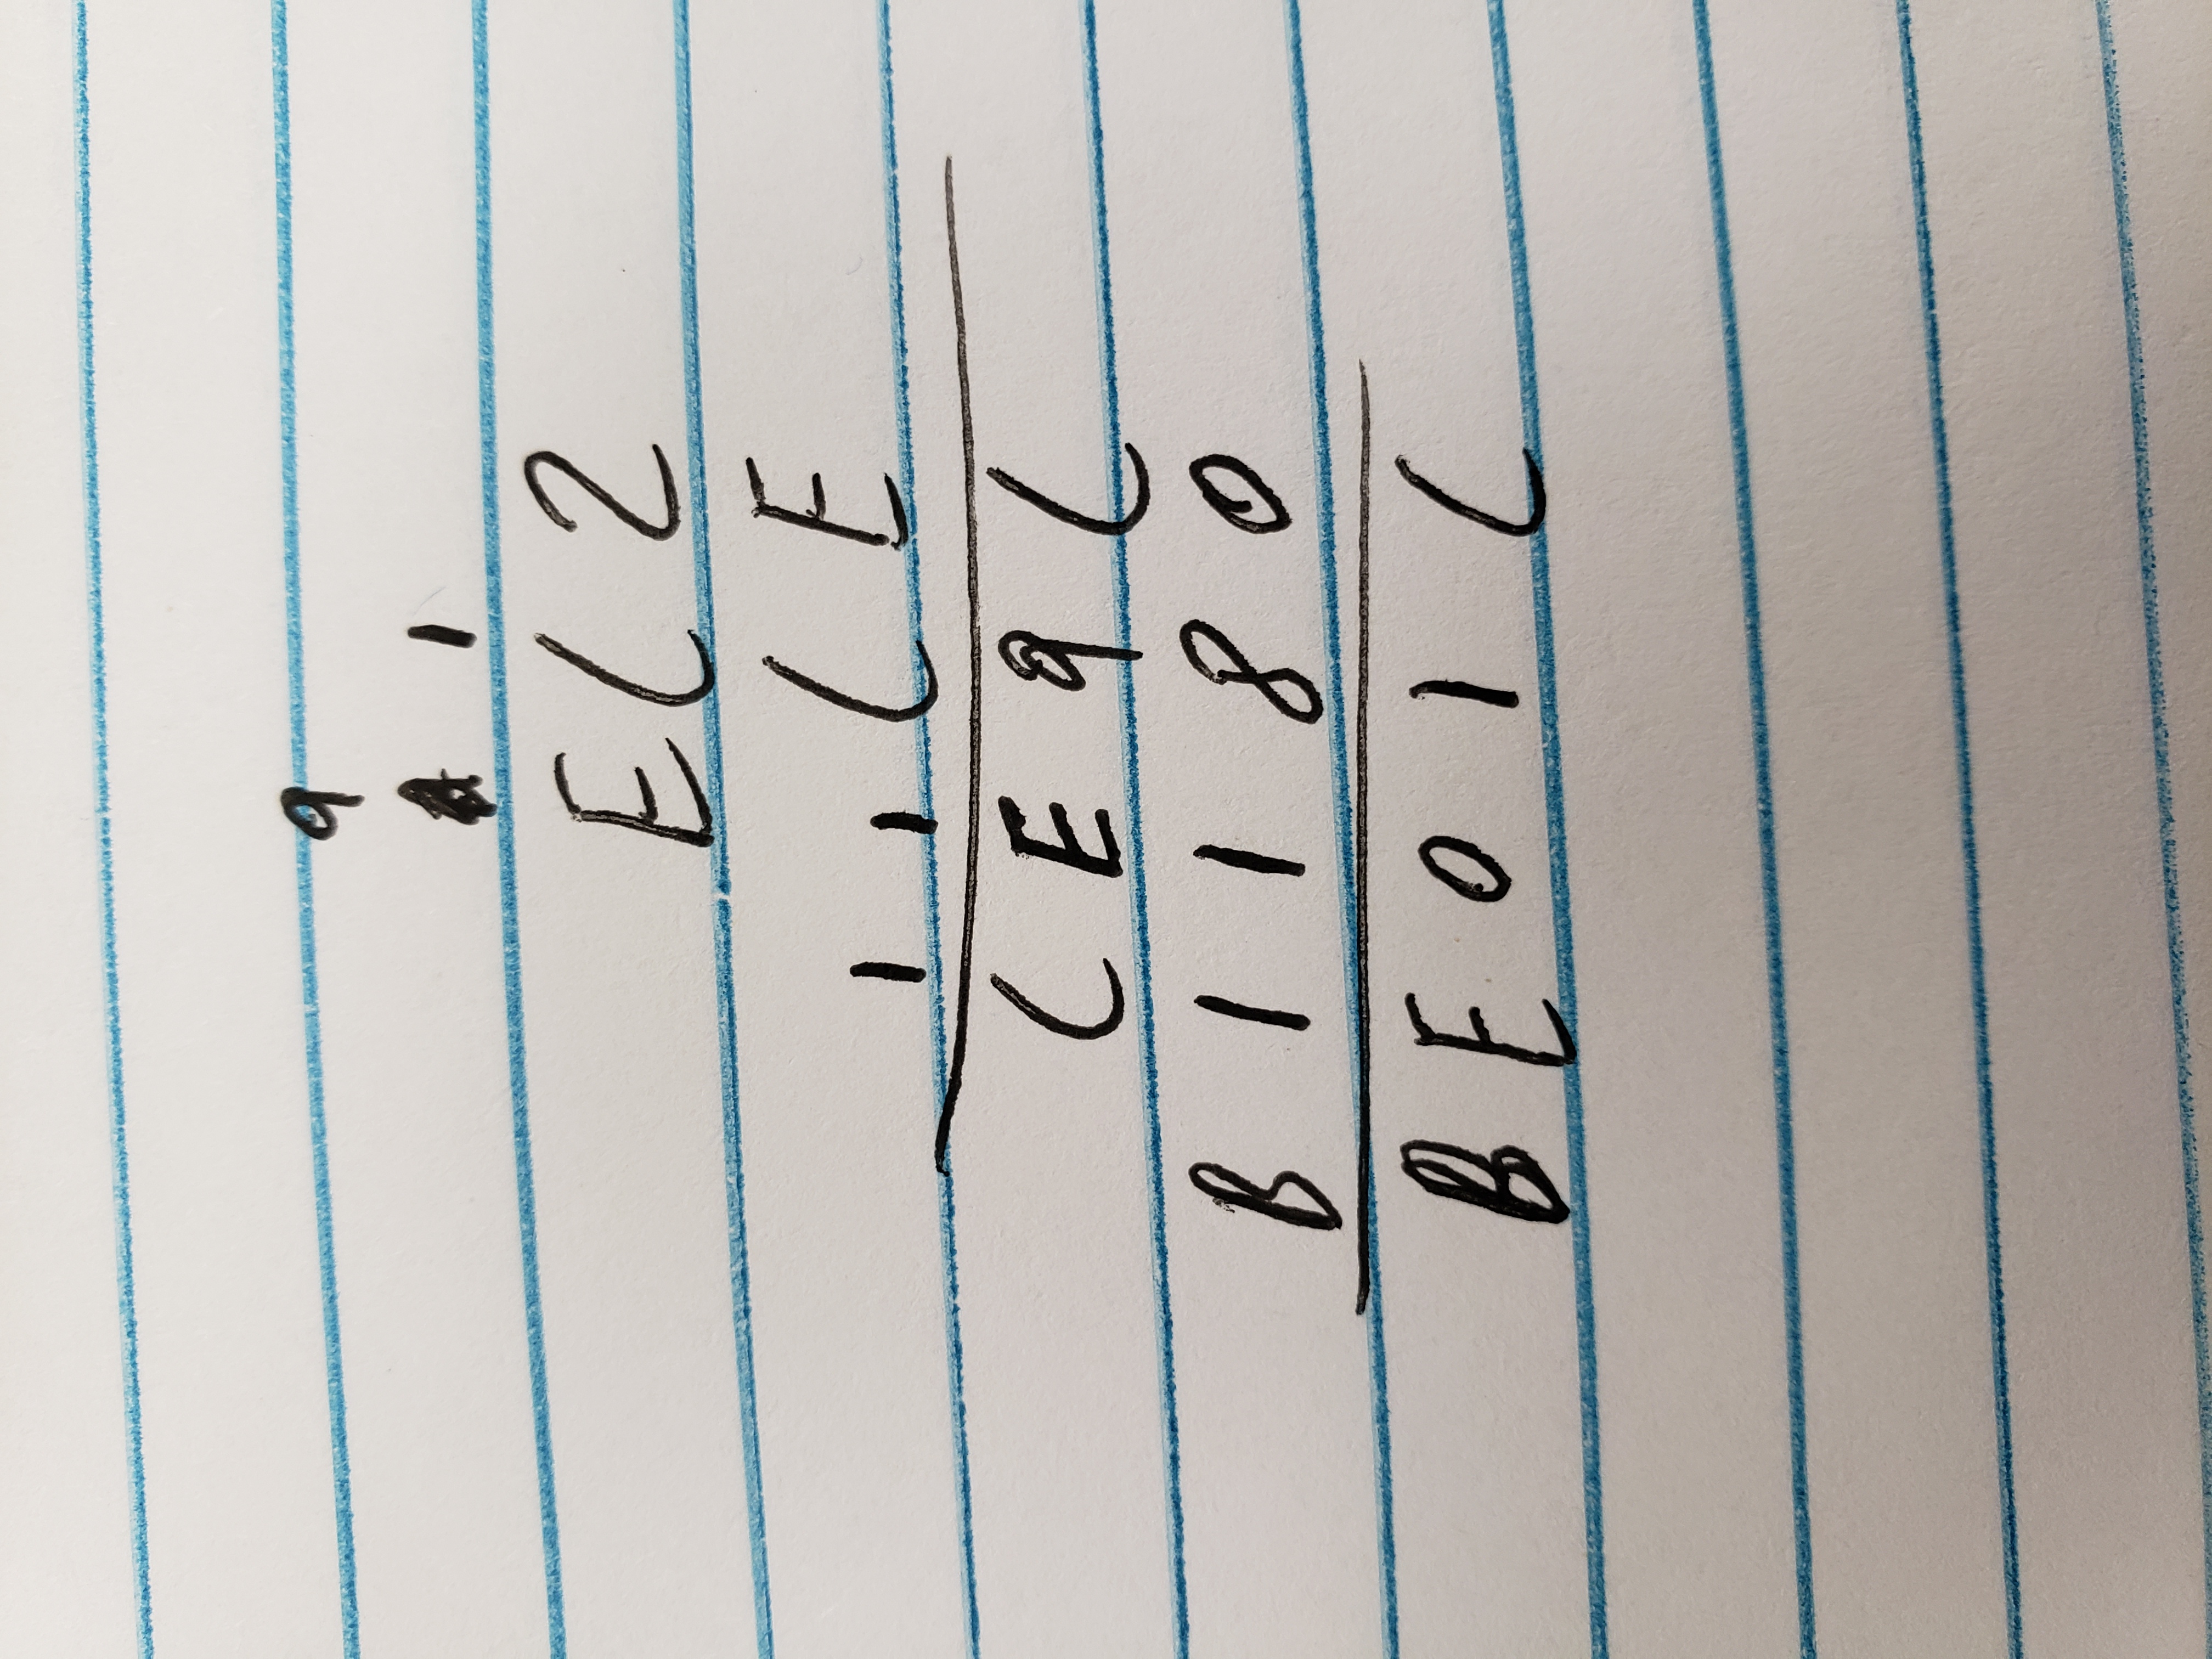 9
1
E C 2
1 1 C E
C E 9 C
B 1 1 8 0
B E 0 1 C